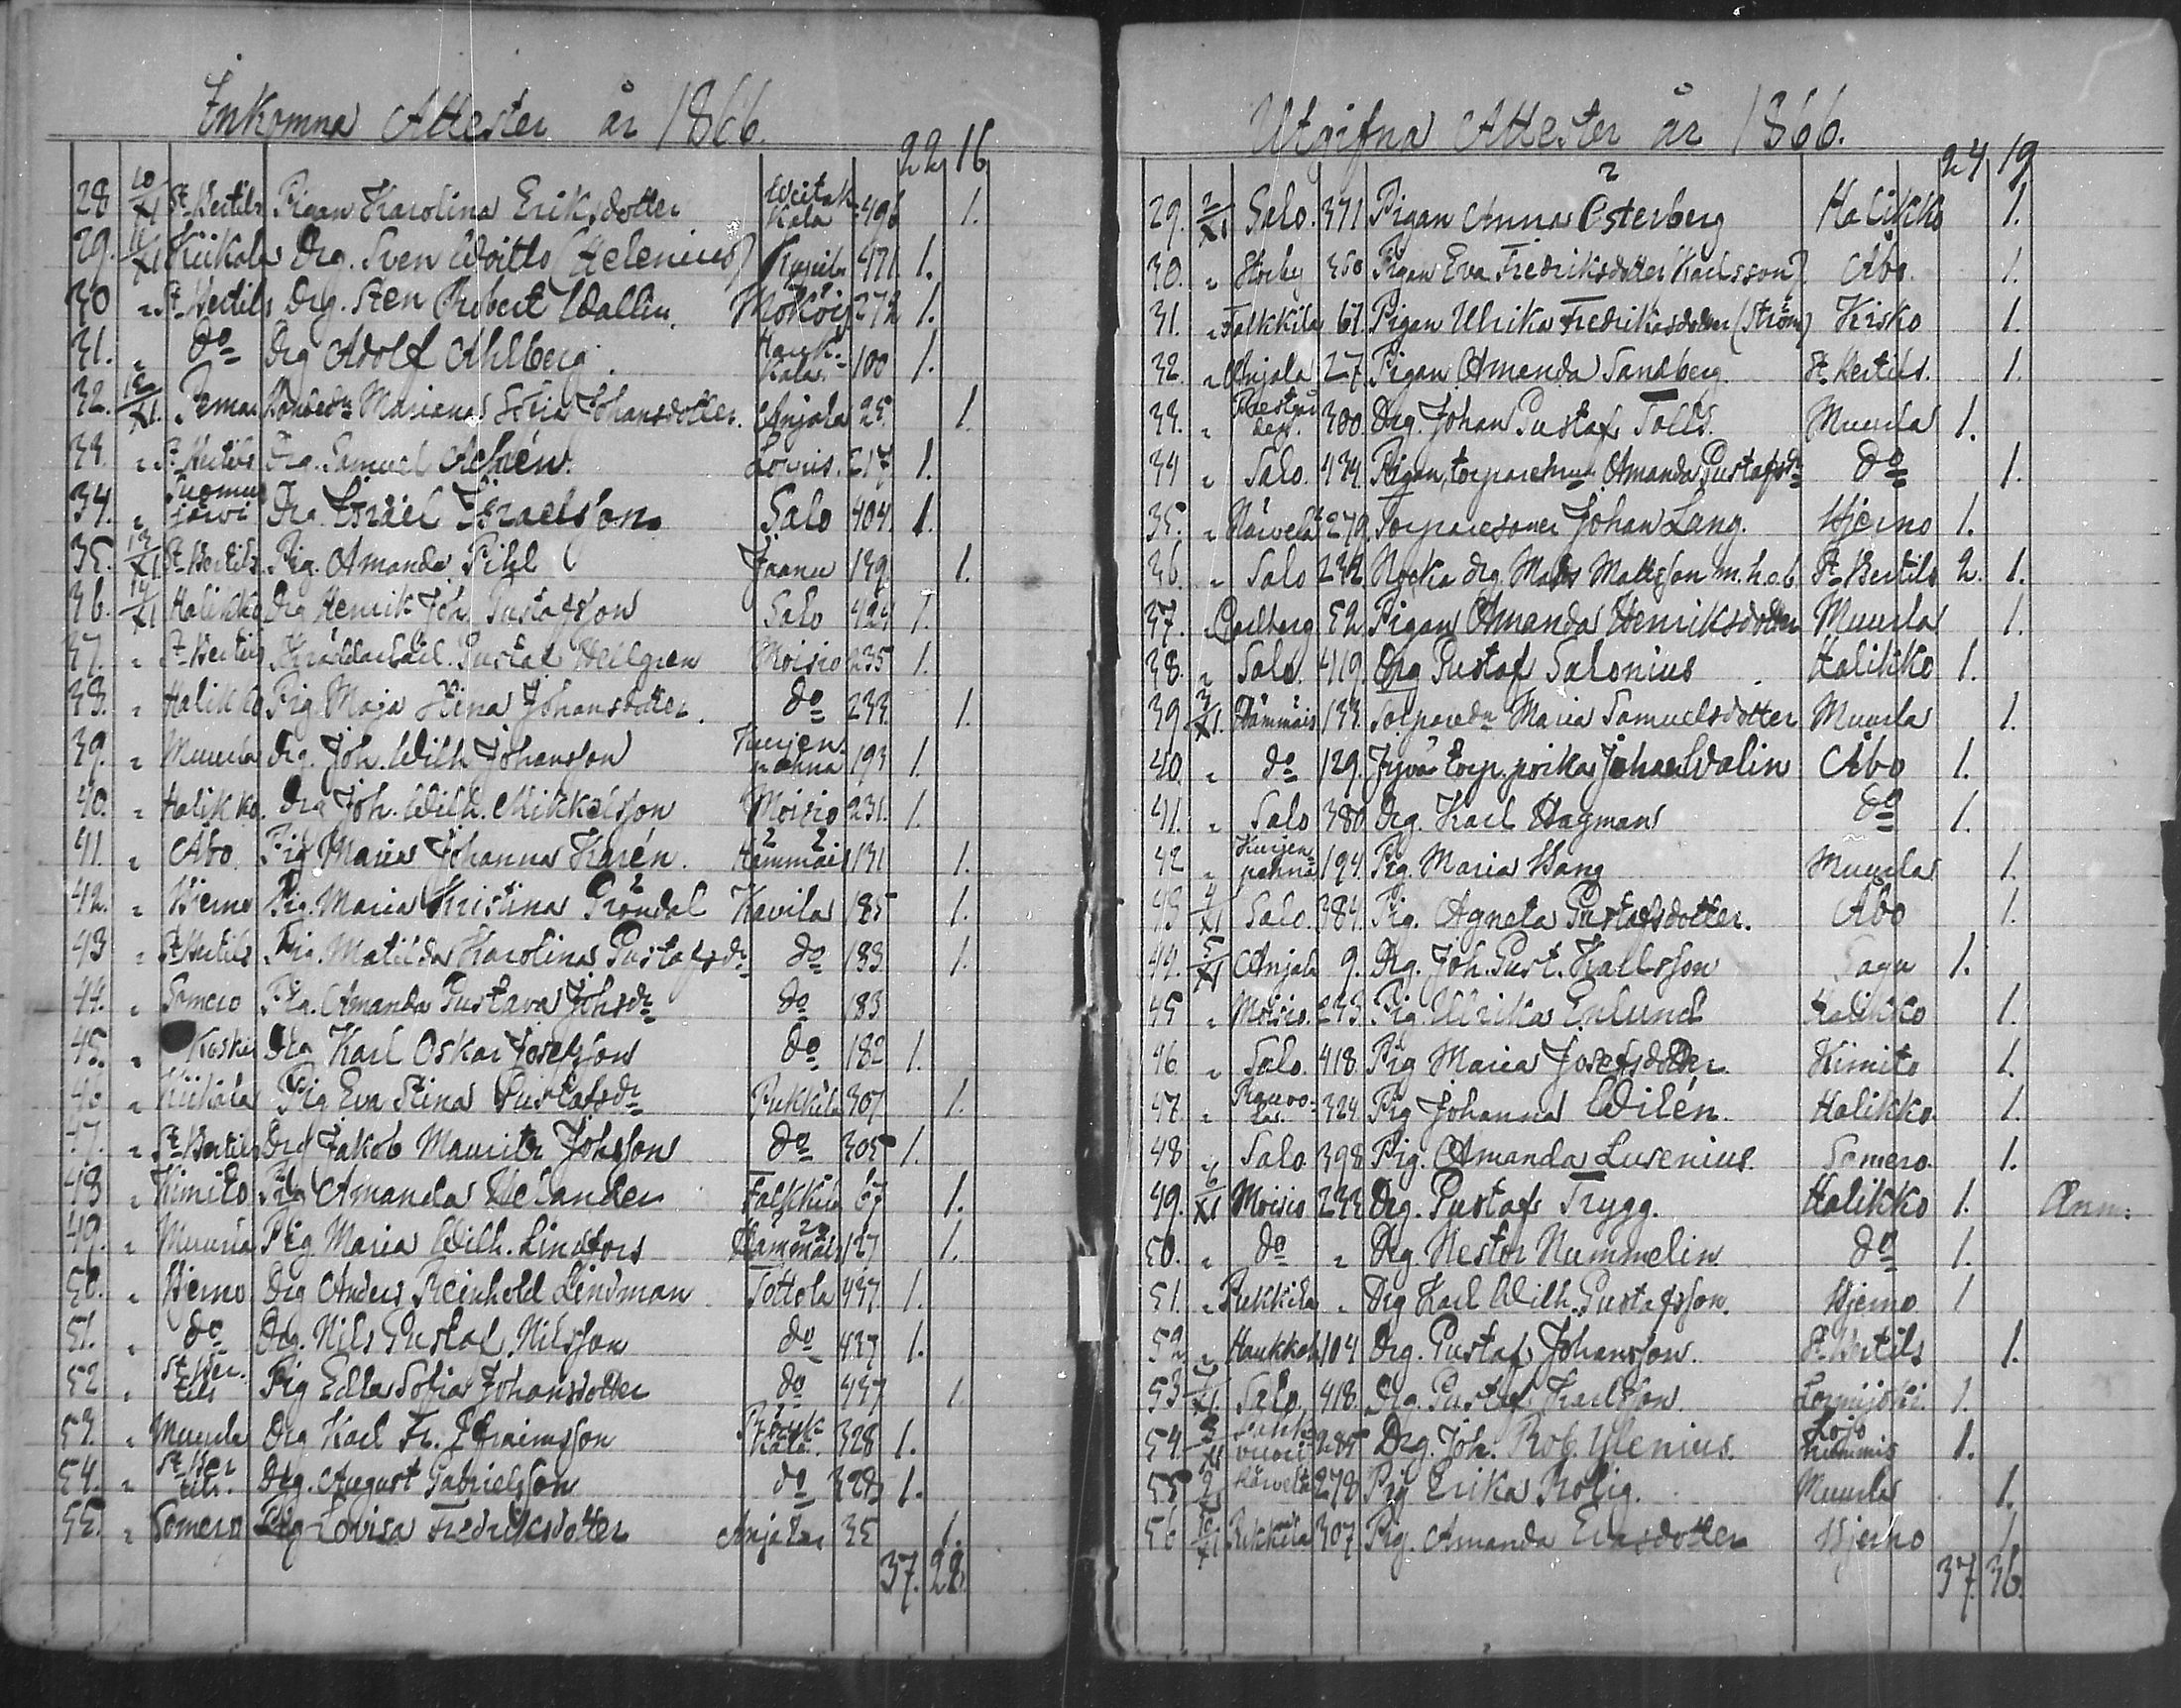 Inkomna Attester år 1866.
22 16
28 10/XI St Bertils Pigan Karolina Eriksdotter kala 496 1.
29. 11/XI Kiikala Drg. Sven Woitto (Helenius) 471. 1.
30 " St Bertils Drg. Sten Robert Wallin. 272 1.
31. " do Drg Adolf Ahlberg. Hauk-kala. 100 1.
32. 12/XI. Pemar Mariena Stina Johansdotter. Anjala 25. 1.
33. " St Bertils Drg. Samuel Achrén. 217 1.
34. " Suomusjärvi Drg. Israel Israelsson Salo 404. 1.
35. 13/XI St Bertils. Pig. Amanda Pihl 139. 1.
36. 14/XI Halikko Drg Henrik Joh Gustafsson Salo 424. 1.
37. " St Bertils Gustaf Heilgren Moisio 235 1.
38. " Halikko Pig. Maja Stina Johansdotter. do 233. 1.
39. " Muurla Drg. Joh. Wilh Johansson Kurjenpahna 193 1.
40. " Halikko. Drg Joh. Wilh. Mikkelsson Moisio 231. 1.
41. " Åbo Pig Maria Johanna Karén. Hämmäis 131 1.
42. " Bjerno Pig. Maria Kristina Gröndal Kavila 185 1.
43 " St Bertils Pig. Matilda Karolina Gustafsdr do 183. 1.
44. " Somero Pig. Amanda Gustava Johsdr do 183
45. " Koski Drg Karl Oskar Josefsson do 182 1.
46 " Kiikala Pig Eva Stina Gustafsdr Pukkila 307 1.
47. " St Bertils Drg Jakob Mauritz Johsson do 305 1.
48 " Kimito Pig Amanda Helander Falkkila 67 1.
49. " Muurla Pig Maria Wilh. Lindfors Hämmäis 127 1.
50. " Bjerno Drg Anders Reinhold Lindman Tottola 437 1.
51. " do Drg. Nils Gustaf Nilsson do 437 1.
52 " St Bertils Pig Edla Sofia Johansdotter do 437 1.
53. " Muurla Drg Karl Fr. Efraimsson 328 1.
54. " St Bertils. Drg. August Gabrielsson do 328 1.
55. " Somero Pig Lovisa Fredriksdotter Anjala 35 1.
37. 28.
Utgifna Attester år 1866.
24 19
29. 2/XI Salo. 371 Pigan Anna Österberg Halikko 1.
30. " 350 Pigan Eva Fredriksdotter (Karlsson) Åbo. 1.
31. " Falkkila 67. Pigan Ulrika Fredriksdotter (Ström) Kisko 1.
32. " Anjala 27 Pigan Amanda Sandberg. St Bertils. 1.
33. " 300. Drg. Johan Gustaf Tolls. Muurla 1.
34 " Salo. 434. Pigan, Amanda Gustafsdr do 1.
35. " Märvelä 279. Torparesonen Johan Lang. Bjerno 1.
36. " Salo 232. Mats Mattsson m.h.o.b. St Bertils 2. 1.
37. " Carlberg 52 Pigan Amanda Henriksdotter Muurla 1.
38. " Salo. 419. Drg Gustaf Salonius Halikko 1.
39 3/XI. Hämmäis 133. Torparedr Maria Samuelsdotter Muurla 1.
40. " do 129. torp. poika Johan Walin Åbo 1.
41. " Salo 380 Drg. Karl Hagman do 1.
42 " Kurjenpahna 194. Pig. Maria Wang Muurla 1.
43 4/XI Salo. 384. Pig. Agneta Gustafsdotter. Åbo 1.
44. 5/XI Anjala 9. Drg. Joh. Gust. Karlsson Sagu 1.
45 " Moisio. 233. Pig. Ulrika Enlund Halikko 1.
46 " Salo. 418. Pig Maria Josefsdotter. Kimito 1.
47. " 324. Pig Johanna Widén. Halikko. 1.
48 " Salo. 398. Pig. Amanda Lusenius. Somero. 1.
49. 6/XI Moisio 233 Drg. Gustaf Trygg. Halikko 1. Anm:
50. " do " Drg. Nestor Nummelin do 1.
51. " Pukkila " Drg Karl Wilh. Gustafsson. Bjerno 1
52 " Haukkala 104 Drg. Gustaf Johansson. St Bertils 1.
53 7/XI. Salo. 418. Drg. Gustaf Karlsson. Lormijoki. 1.
54. 8/XI 285 Drg. Joh. Rob. Ylenius. Lojo Nummis 1.
55 9/XI Märvelä 278 Pig Erika Rolig. Muurla 1.
56 10/XI Pukkila 307 Pig. Amanda Evasdotter Bjerno 1
37. 36.